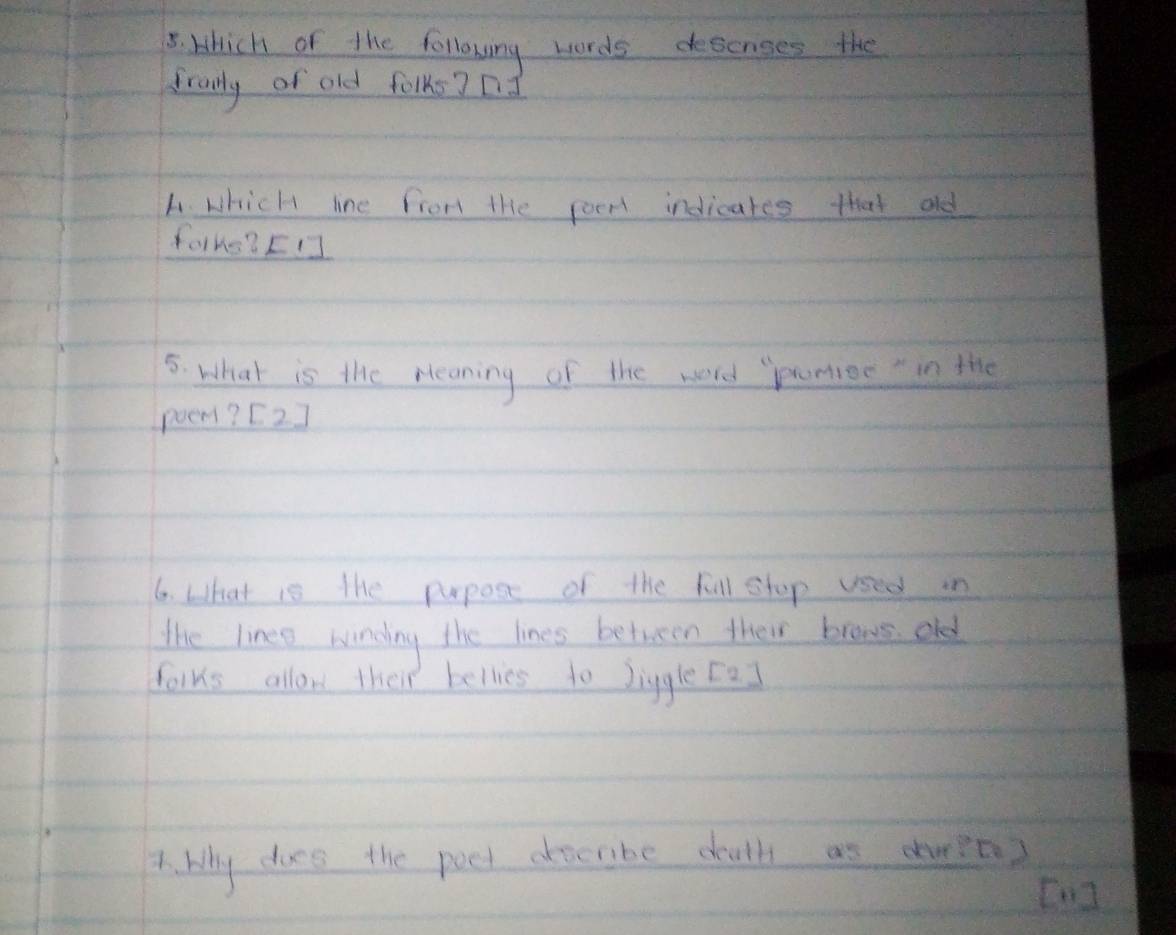 3. Which of the following words descrises the
fraily of old folks? [1]
4. Which line from the poem indicates that old
folks? [1]
5. What is the Meaning of the word "promise" in the
poem? [2]
6. What is the purpose of the full stop used in
the lines winding the lines between their brows. old
folks allow their bellies to Jiggle [2]
7. Why does the poet describe death as dear? [2]
[11]